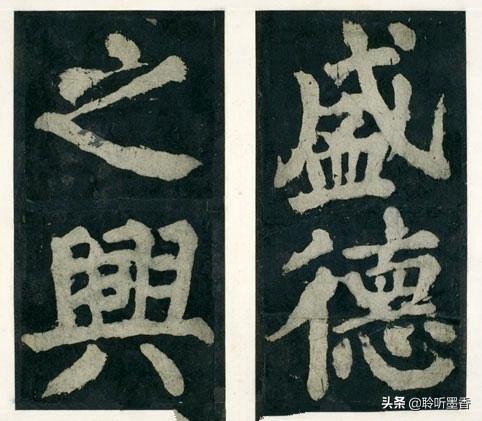 盛德
之興
头条 @聆听墨香